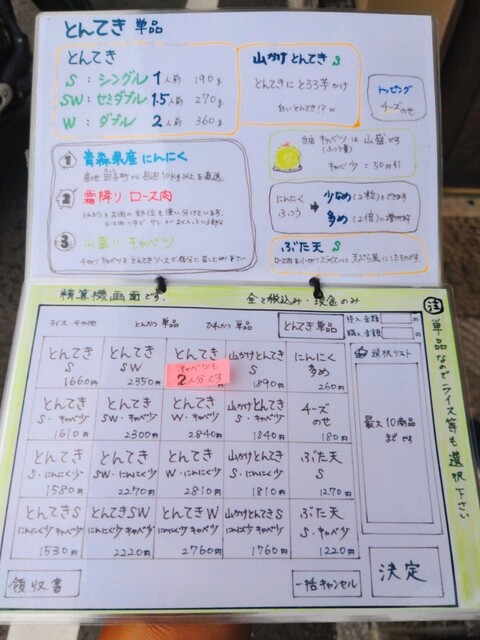 とんてき 単品
とんてき
S : シングル 1人前 190g
SW : セミダブル 1.5人前 270g
W : ダブル 2人前 360g
山かけとんてき S
とんてきにとろろ芋かけ
白いとんてき!? w
トッピング
チーズのせ
① 青森県産にんにく
② 霜降り ロース肉
③ 山盛り キャベツ
千切りキャベツをとんてきソースで
キャベツ は 山盛です
(ふつう量)
キャベ少 = 50円引
にんにく
ふつう
少なめ (2粒)もできます
多め (2倍)に増やせます
ぶた天 S
精算機画面です. 全て税込み・現金のみ
ライス その他 とんかつ 単品 ひれかつ 単品 とんてき単品
投入金額
購入金額
とんてき S 1660円
とんてき SW 2350円
とんてき
キャベツも 2人分です
山かけとんてき S 1890円
にんにく 多め 260円
とんてき S・キャベ少 1610円
とんてき SW・キャベ少 2300円
とんてき W・キャベ少 2840円
山かけとんてき S・キャベ少 1840円
チーズ のせ 180円
とんてき S・にんにく少 1580円
とんてき SW・にんにく少 2270円
とんてき W・にんにく少 2810円
山かけとんてき S・にんにく少 1810円
ぶた天 S 1270円
とんてきS にんにく少 キャベ少 1530円
とんてきSW にんにく少 キャベ少 2220円
とんてきW にんにく少 キャベ少 2760円
山かけとんてきS にんにく少 キャベ少 1760円
ぶた天 S・キャベ少 1220円
選択リスト
最大10商品
までです
領収書
一括キャンセル
決定
注 単品なのでライス等も選択下さい